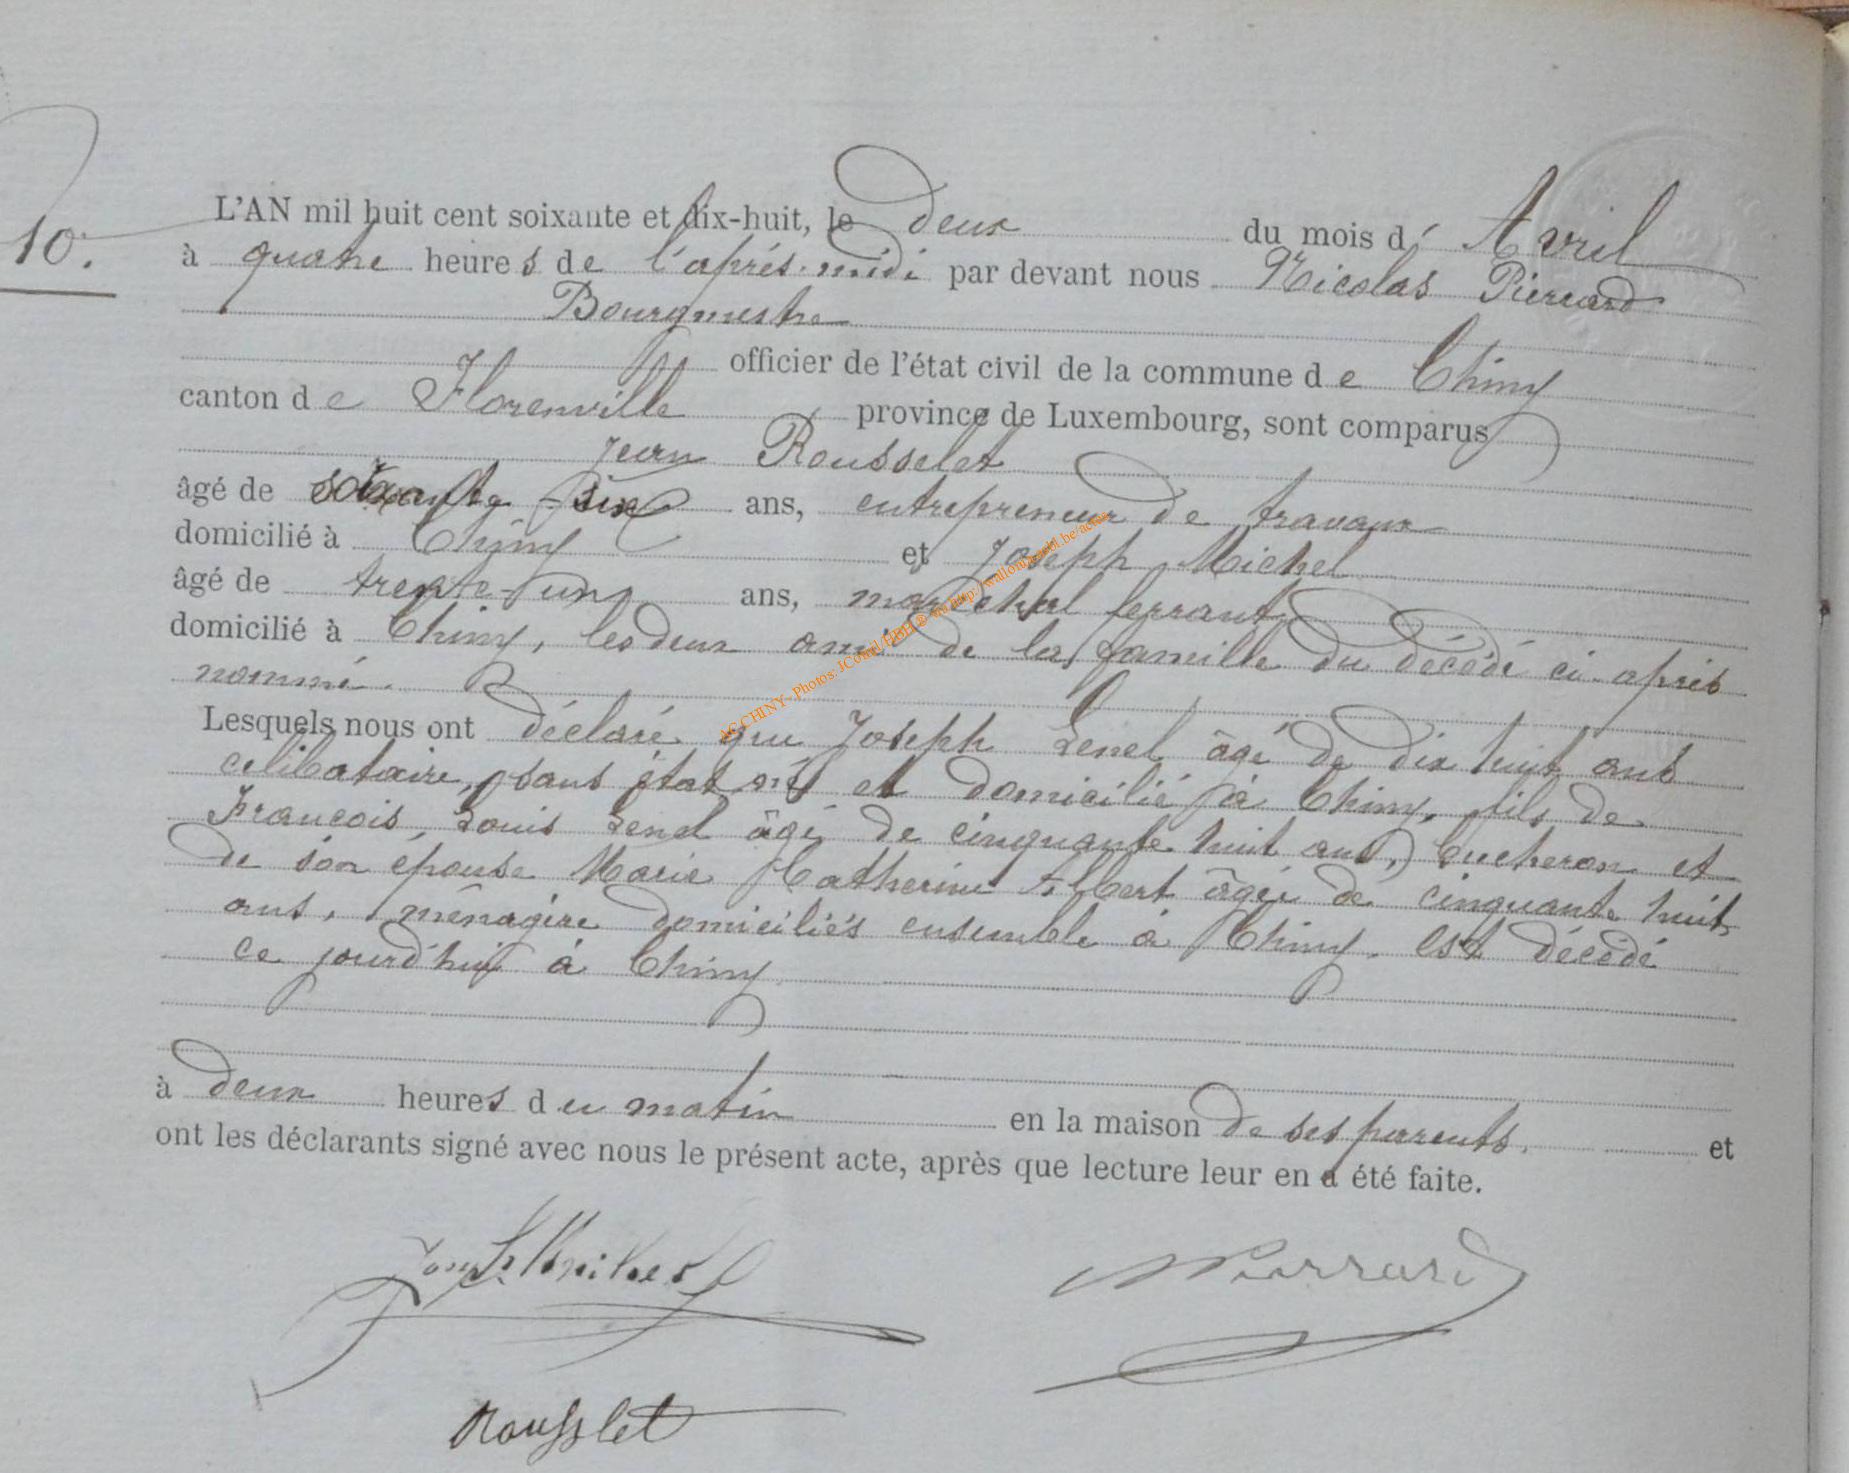 10.
L'AN mil huit cent soixante et dix-huit, le deux du mois d' Avril
à quatre heures de l'après-midi par devant nous Nicolas Pierrard
Bourgmestre
officier de l'état civil de la commune de Chiny
canton de Florenville province de Luxembourg, sont comparus
Jean Rousselet
âgé de soixante-six ans, entrepreneur de travaux
domicilié à Chiny et Joseph Michel
âgé de trente-un ans, maréchal ferrant
domicilié à Chiny, les deux amis de la famille du décédé ci-après
nommé.
Lesquels nous ont déclaré que Joseph Lenel âgé de dix huit ans
célibataire, sans état né et domicilié à Chiny, fils de
François Louis Lenel âgé de cinquante huit ans, bucheron et
de son épouse Marie Catherine Albert âgée de cinquante huit
ans, ménagère domiciliés ensemble à Chiny. Est décédé
ce jourd'hui à Chiny
à deux heures du matin en la maison de ses parents. et
ont les déclarants signé avec nous le présent acte, après que lecture leur en a été faite.
NPierrard
Rousslet